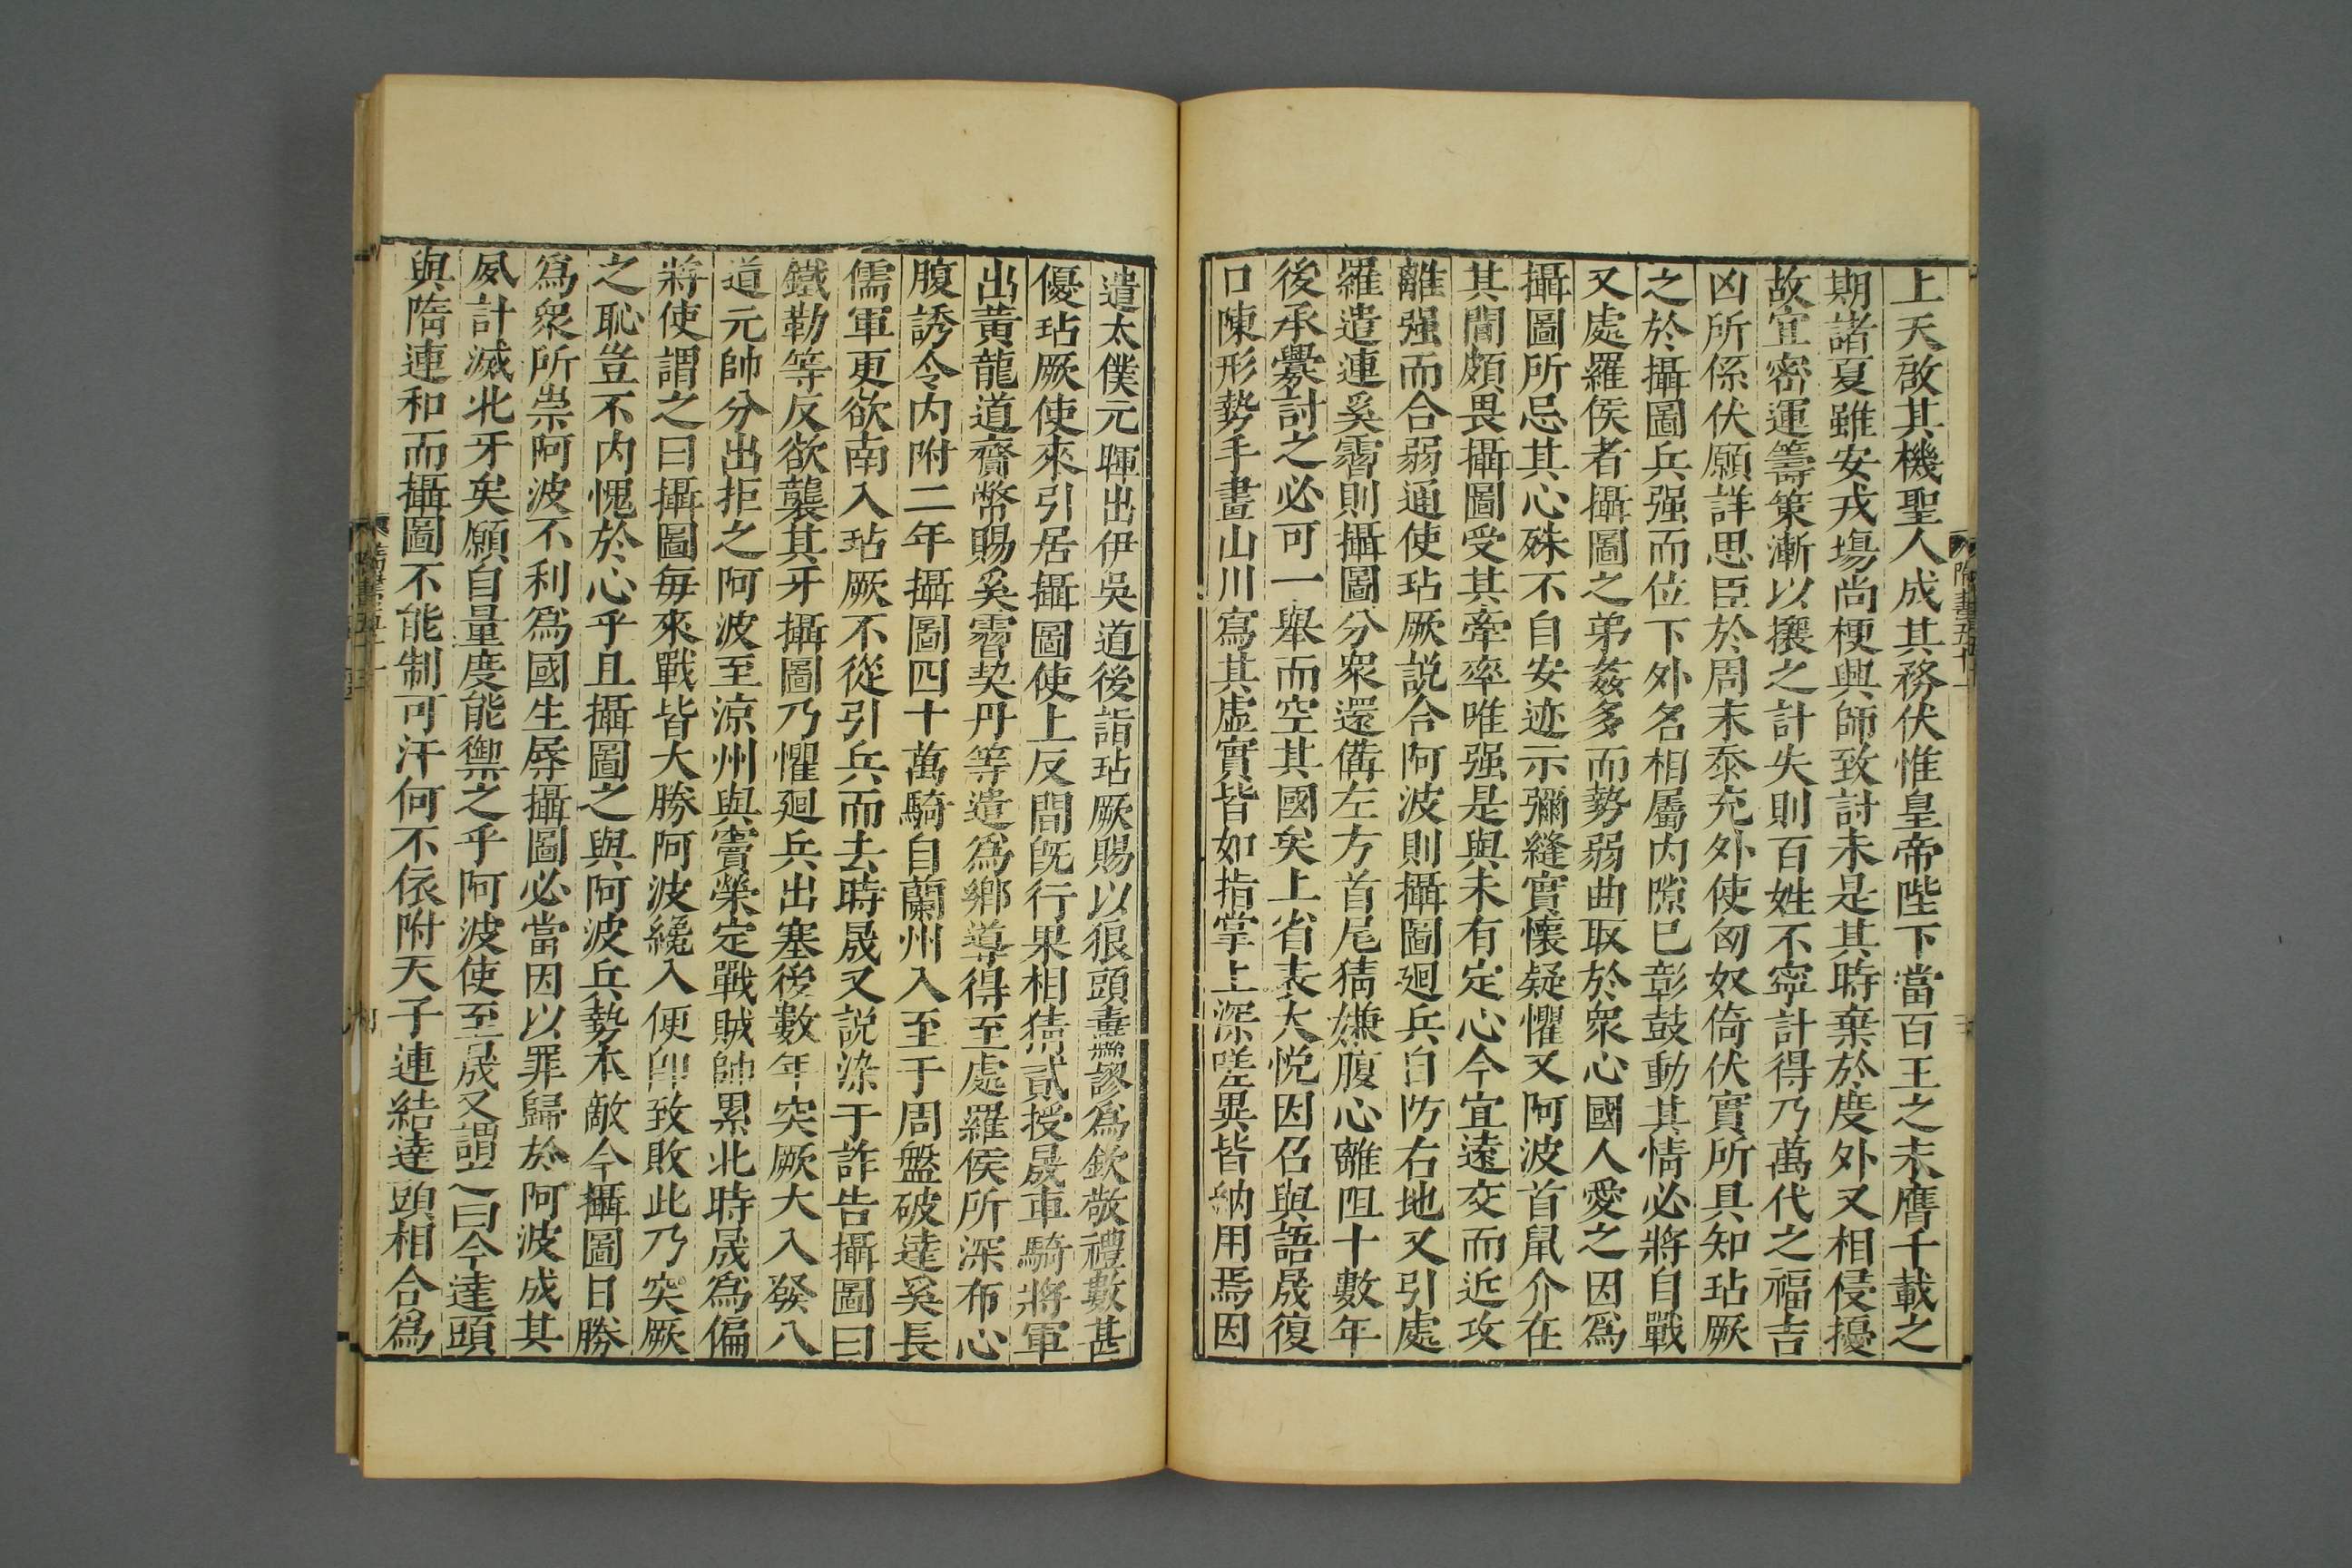 上天啟其機聖人成其務伏惟皇帝陛下當百王之末膺千載之
期諸夏雖安戎埸尚梗興師致討未是其時棄於度外又相侵擾
故宜密運籌策漸以攘之計失則百姓不寧計得乃萬代之福吉
凶所係伏願詳思臣於周末忝充外使匈奴倚伏實所具知玷厥
之於攝圖兵强而位下外名相屬内隙已彰鼓動其情必將自戰
又處羅侯者攝圖之弟姦多而勢弱曲取於衆心國人愛之因爲
攝圖所忌其心殊不自安迹示彌縫實懷疑懼又阿波首鼠介在
其間頗畏攝圖受其牽率唯强是與未有定心今宜遠交而近攻
離强而合弱通使玷厥説合阿波則攝圖廻兵自防右地又引處
羅遣連奚霫則攝圖分衆還備左方首尾猜嫌腹心離咀十數年
後承釁討之必可一舉而空其國矣上省表大悅因召與語晟復
口陳形勢手畫山川寫其虛實皆如指掌上深嗟異皆納用焉因
遣太僕元暉出伊吳道後詣玷厥賜以狼頭纛謬爲欽敬禮數甚
優玷厥使來引居攝圖使上反間旣行果相猜貳授晟車騎將軍
出黃龍道齎幣賜奚霫契丹等遣爲鄉導得至處羅侯所深布心
腹誘令内附二年攝圖四十萬騎自蘭州入至于周盤破達奚長
儒軍更欲南入玷厥不從引兵而去時晟又説染干詐告攝圖曰
鐵勒等反欲襲其牙攝圖乃懼廻兵出塞後數年突厥大入發八
道元帥分出拒之阿波至涼州與竇榮定戰賊帥累北時晟爲偏
將使謂之曰攝圖每來戰皆大勝阿波纔入便卽致敗此乃突厥
之恥豈不内愧於心乎且攝圖之與阿波兵勢本敵今攝圖日勝
爲衆所崇阿波不利爲國生辱攝圖必當因以罪歸於阿波成其
夙計滅北牙矣願自量度能禦之乎阿波使至晟又謂之曰今達頭
與隋連和而攝圖不能制可汗何不依附天子連結達頭相合爲